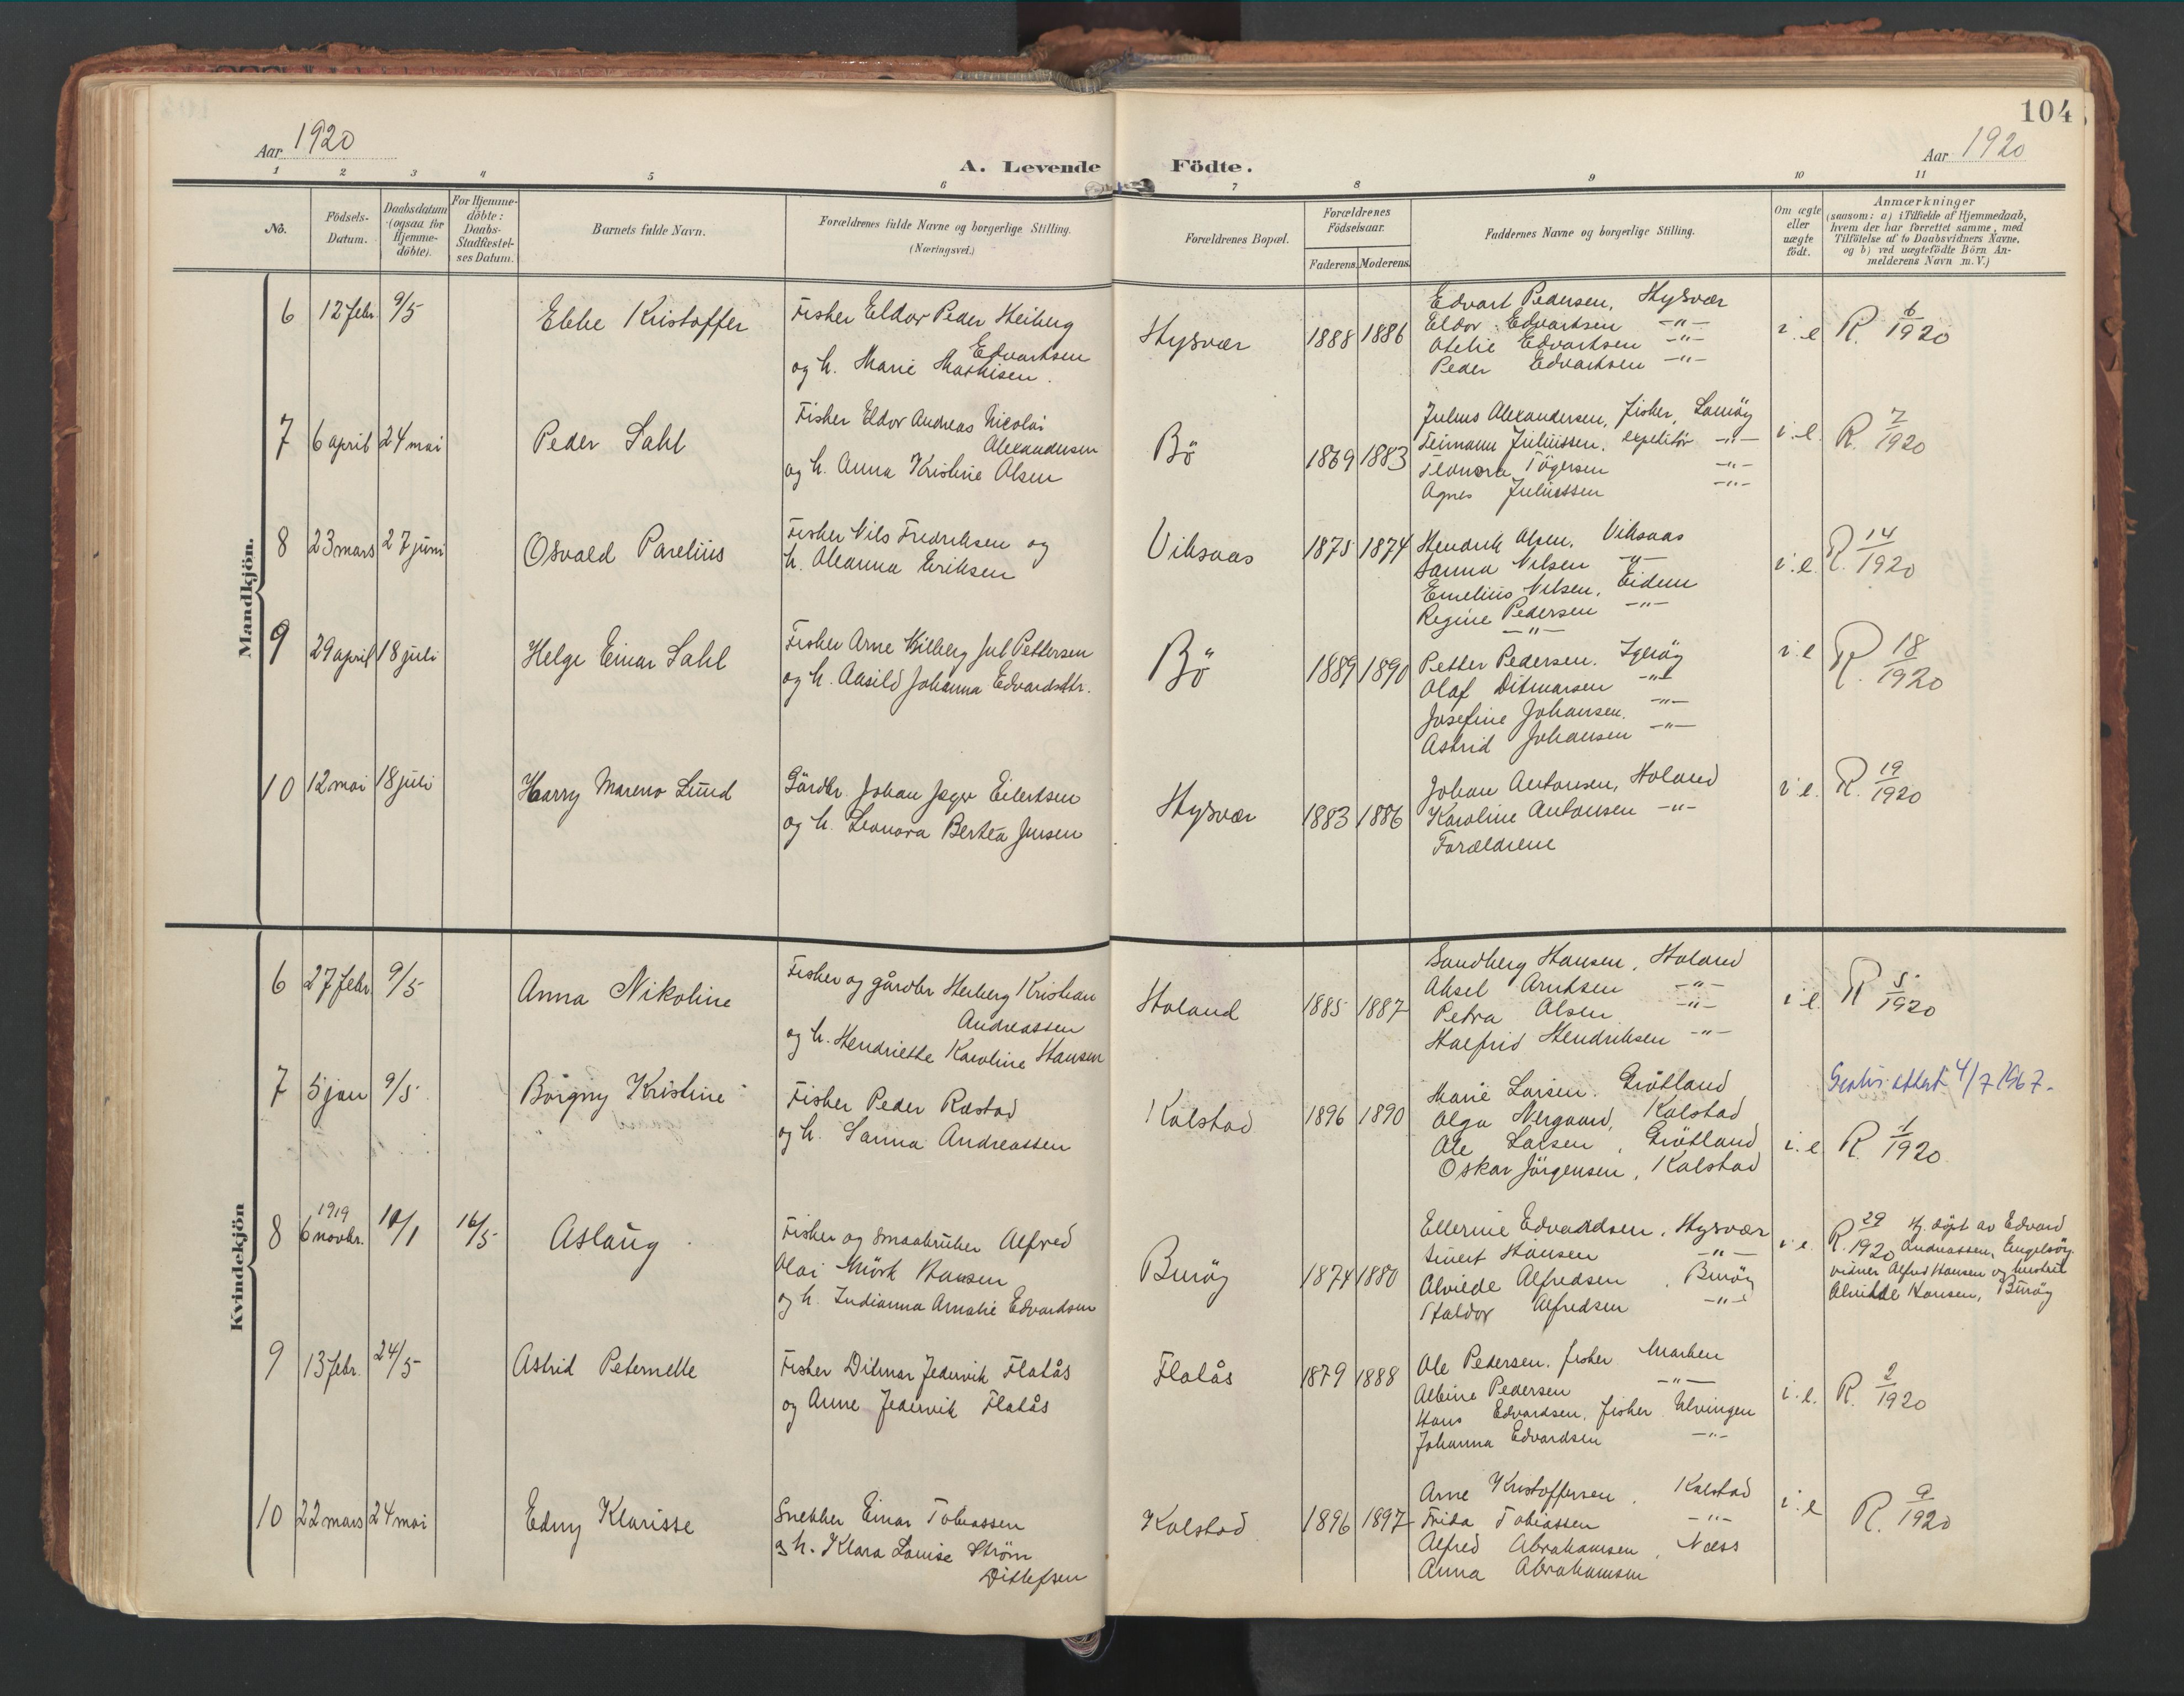 104
Aar 1920
A. Levende Födte.
Aar 1920
1 2 3 4 5 6 7 8 9 10 11
No.
Födsels-
Datum.
Daabsdatum
(ogsaa for
Hjemme-
döbte).
For Hjemme-
döbte:
Daabs-
Stadfæstel-
ses Datum.
Barnets fulde Navn.
Forældrenes fulde Navne og borgerlige Stilling.
(Næringsvei.)
Forældrenes Bopæl.
Forældrenes
Födselsaar.
Faderens. Moderens.
Faddernes Navne og borgerlige Stilling.
Om ægte
eller
uægte
födt.
Anmærkninger
(saasom: a) i Tilfælde af Hjemmedaab,
hvem der har forrettet samme, med
Tilföielse af to Daabsvidners Navne,
og b) ved uægtefödte Börn An-
melderens Navn m. V.)
Mandkjön.
6 12 febr. 9/5 Ebbe Kristoffer
Fisker Eldor Peder Heiberg
Edvartsen
og h. Marie Mathisen.
Hysvær 1888 1886
Edvart Pedersen, Hysvær
Eldor Edvartsen -"-
Otelie Edvartsen -"-
Peder Edvartsen -"-
i. e R. 6/1920
7 6 april 24 mai Peder Dahl
Fisker Eldor Andreas Nicolai
Alexandersen
og h. Anna Kristine Olsen
Bö 1869 1883
Julius Alexandersen, fisker, Lamöy
Julinssen, expeditör -"-
Tögersen -"-
Agnes Juliussen -"-
i. e. R. 7/1920
8 23 mars 27 juni Osvald Parelius
Fisker Nils Fredriksen og
h. Oleanna Eriksen
Viksaas 1875 1874
Hendrik Olsen, Viksaas
Sanna Nilsen -"-
Emelius Nilsen, Eidem
Regine Pedersen -"-
-"-
i. e. R. 14/1920
9 29 april 18 juli Helge Einar Dahl
Fisker Arne Hilberg Jul Pettersen
og h. Aasild Johanna Edvardsdtr.
Bö 1889 1890
Petter Pedersen. Igeröy
Olaf Ditmarsen -"-
Josefine Johansen. -"-
Astrid Johansen -"-
i. e R. 18/1920
10 12 mai 18 juli Harry Mareno Lund
Gårdbr. Johan Jager Eilertsen
og h. Leonora Bertea Jensen
Hysvær 1883 1886
Johan Antonsen, Holand
Karoline Antonsen -"-
Forældrene
i e. R. 19/1920
Kvindekjön
6 27 febr. 9/5 Anna Nikoline
Fisker og gårdbr Herberg Kristian
Andreassen
og h. Hendriette Karoline Hansen
Holand 1885 1887
Sandberg Hansen, Holand
Aksel Arntsen -"-
Petra Olsen -"-
Halfrid Hendriksen -"-
i e. R 5/1920
7 5 jan 9/5 Borgny Kristine
Fisker Peder Rastad
og h. Sanna Andreassen
Kalstad 1896 1890
Marie Larsen. Grötland
Olga Nergaard, Kalstad
Ole Larsen, Grötland
Oskar Jörgensen, Kalstad
i. e. R. 1/1920
attest 4/7 1967-
8 1919
6 novbr. 10/1 16/5 Aslaug
Fisker og smaabruker Alfred
Olai Mörk Hansen
og h. Indianna Amalie Edvardsen
Buröy 1874 1880
Ellerine Edvardsen, Hysvær
Sivert Hansen -"-
Alvilde Alfredsen, Buröy
Haldor Alfredsen -"-
i e. R. 29/1920 Hj. döpt av Edvard
Andreassen, Engelsöy.
vidner Alfred Hansen og hustru
Alvilde Hansen, Buröy
9 13 febr. 24/5 Astrid Peternelle
Fisker Ditmar Jedervik Flatås
og Anne Jedervik Flatås
Flatås 1879 1888
Ole Pedersen, fisker Marken
Albine Pedersen -"-
Hans Edvardsen, fisker Elvingen
Johanna Edvardsen -"-
i. e. R. 2/1920
10 22 mars 24 mai Edny Klarisse
Snekker Einar Tobiassen
og h. Klara Louise Ström
Ditlefsen
Kalstad 1896 1897
Arne Kristoffersen, Kalstad
Frida Tobiassen -"-
Alfred Abrahamsen, Næss
Anna Abrahamsen
i. e R. 9/1920